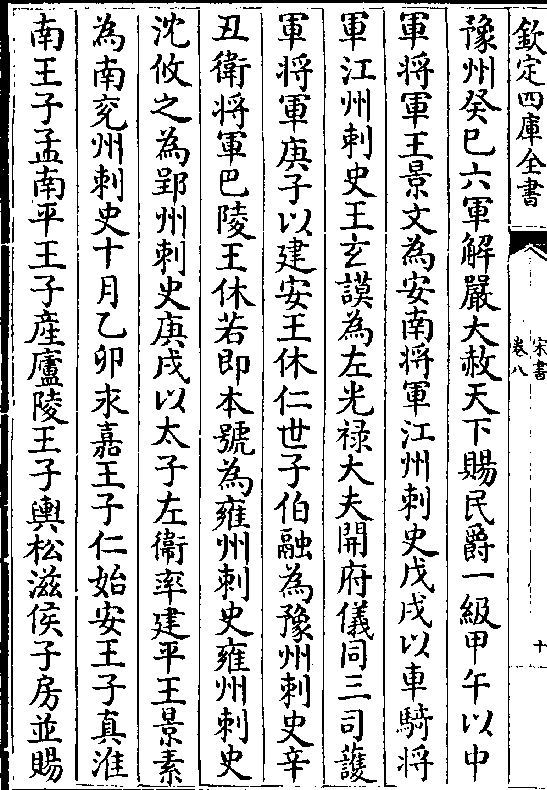 欽定四庫全書
宋書
卷八
十
豫州癸巳六軍解嚴大赦天下賜民爵一級甲午以中
軍将軍王景文為安南将軍江州刺史戊戌以車騎将
軍江州刺史王玄謨為左光禄大夫開府儀同三司䕶
軍将軍庚子以建安王休仁世子伯融為豫州刺史辛
丑衛将軍巴陵王休若即本號為雍州刺史雍州刺史
沈攸之為郢州刺史庚戌以太子左衛率建平王景素
為南兖州刺史十月乙卯永嘉王子仁始安王子真淮
南王子孟南平王子産廬陵王子輿松滋侯子房並賜